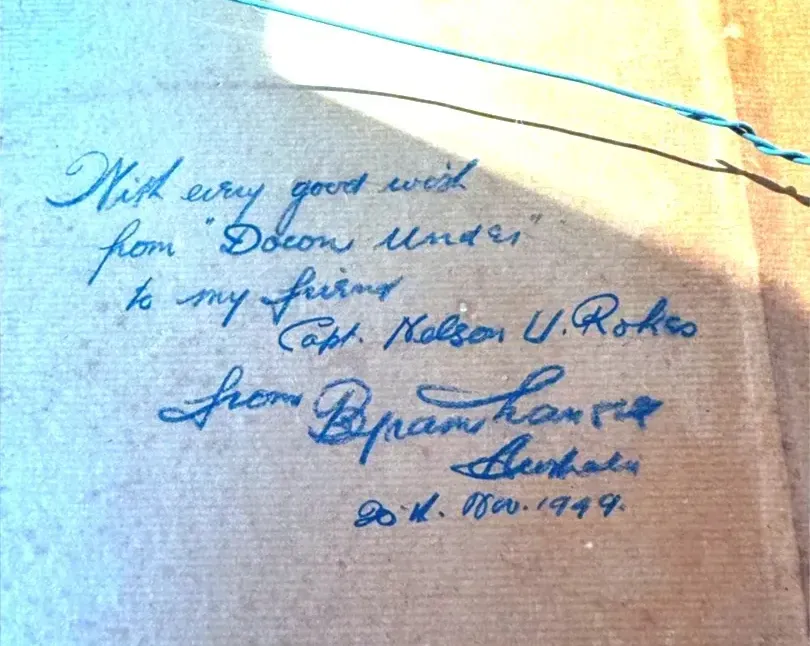 With every good wish
from "Down Under"
to my friend
Capt. Nelson U. Rokes
from Byram
Australia
20th. Nov. 1949.